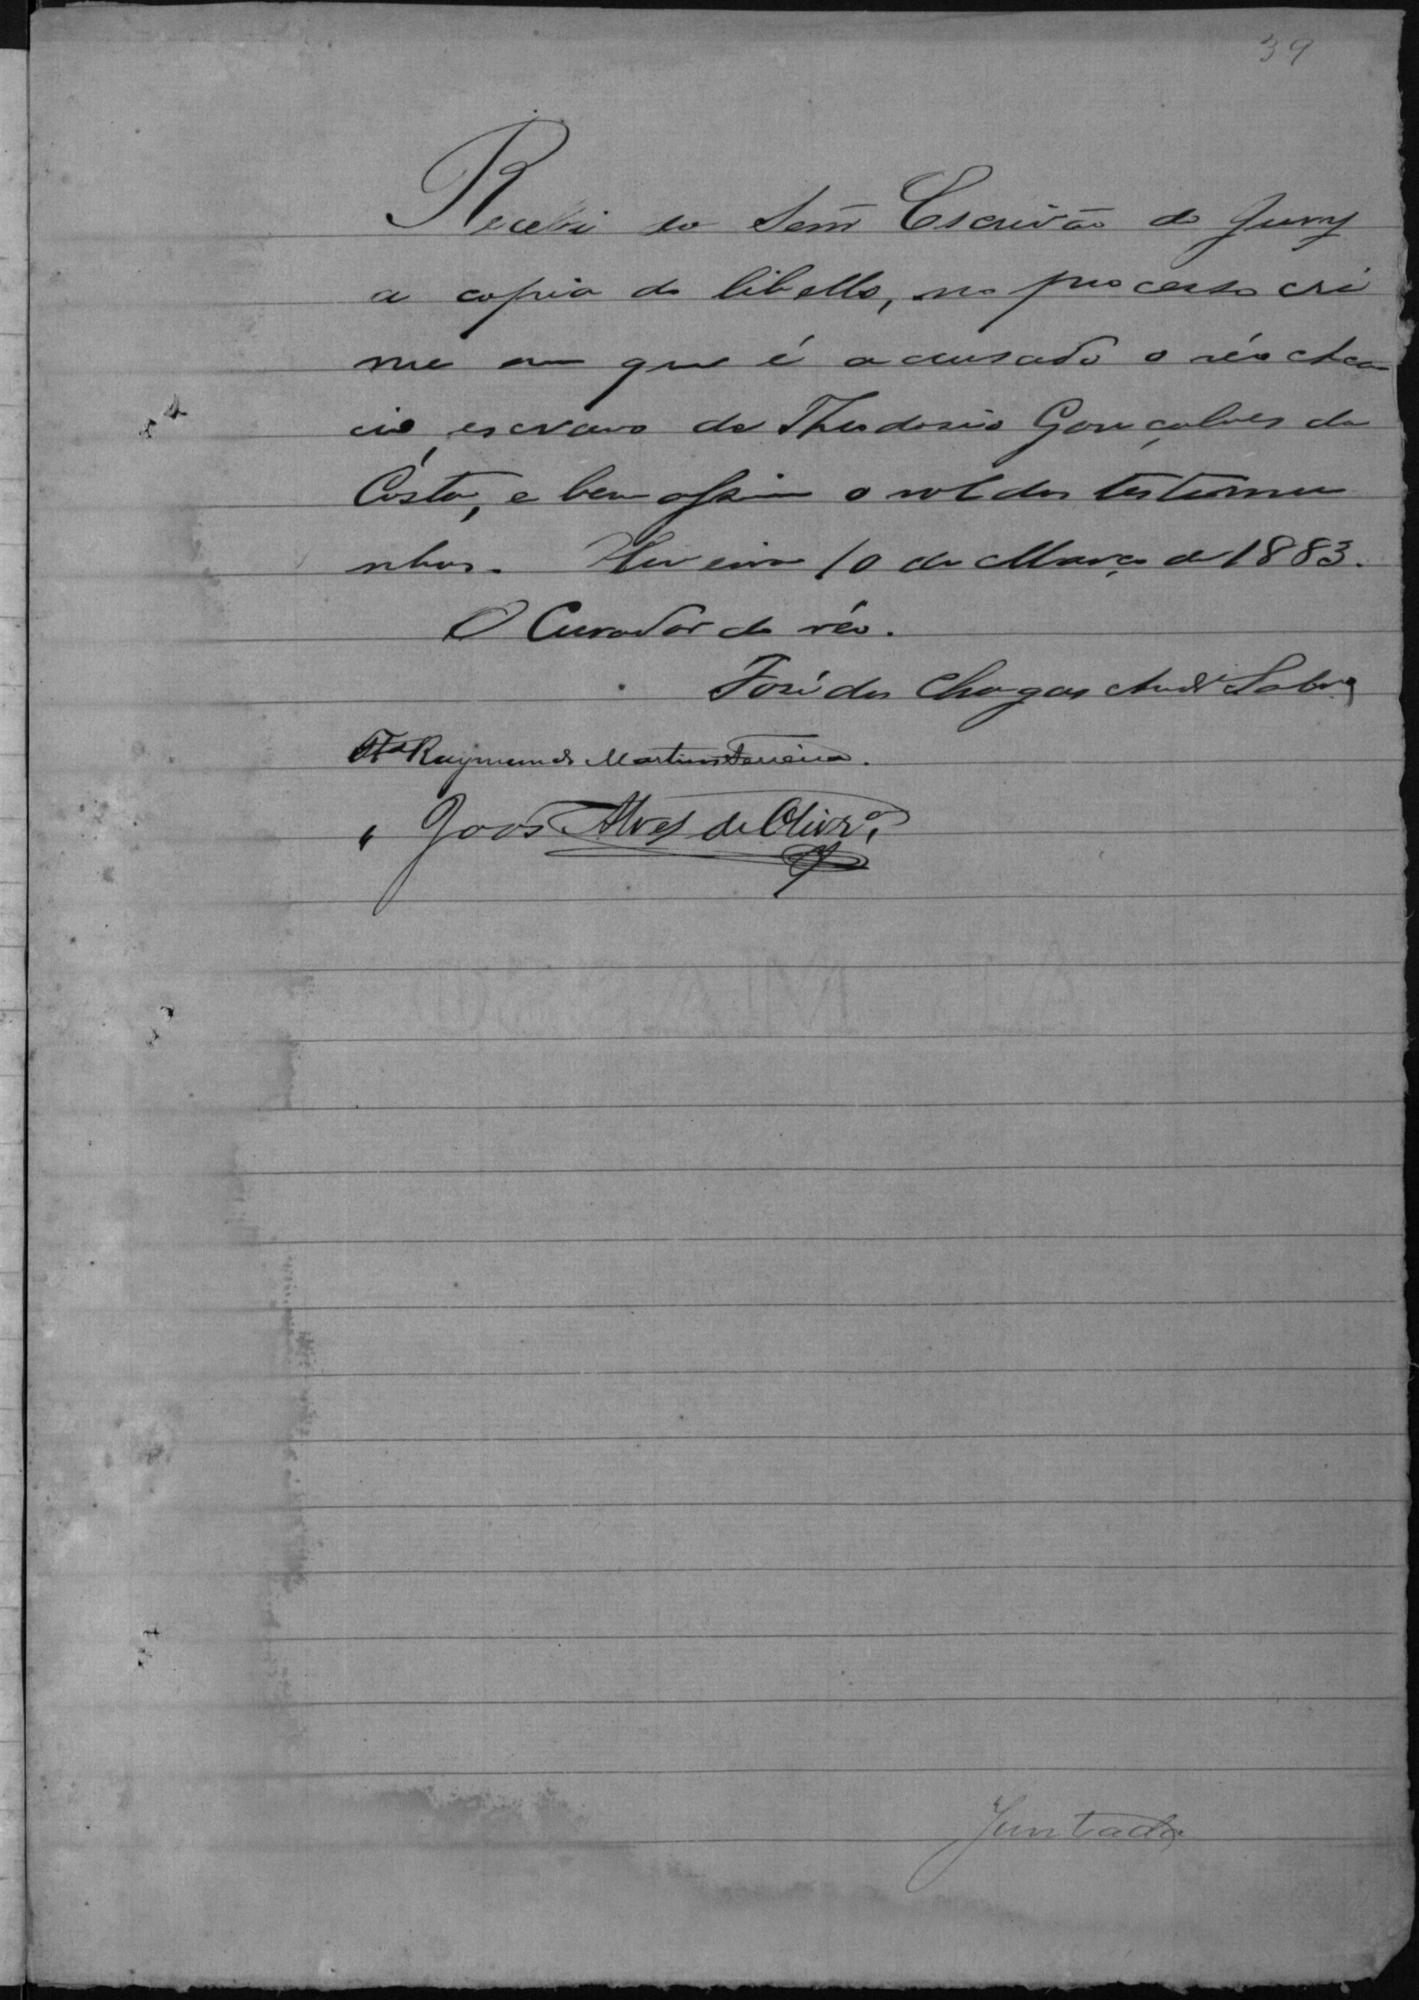 39
Recebi do Senr Escrivão do Jury
a copia do libello, no processo cri
me em que é accusado o réo Aca
cio, escravo de Theodosio Gonçalves da
Costa, e bem assim o rol das testemu
nhas. 10 de Março de 1883.
O Curador do réo.
José das Chagas Andr.
Ta Raymundo Martins Ferreira.
" João Alves de Olivra.
Juntada